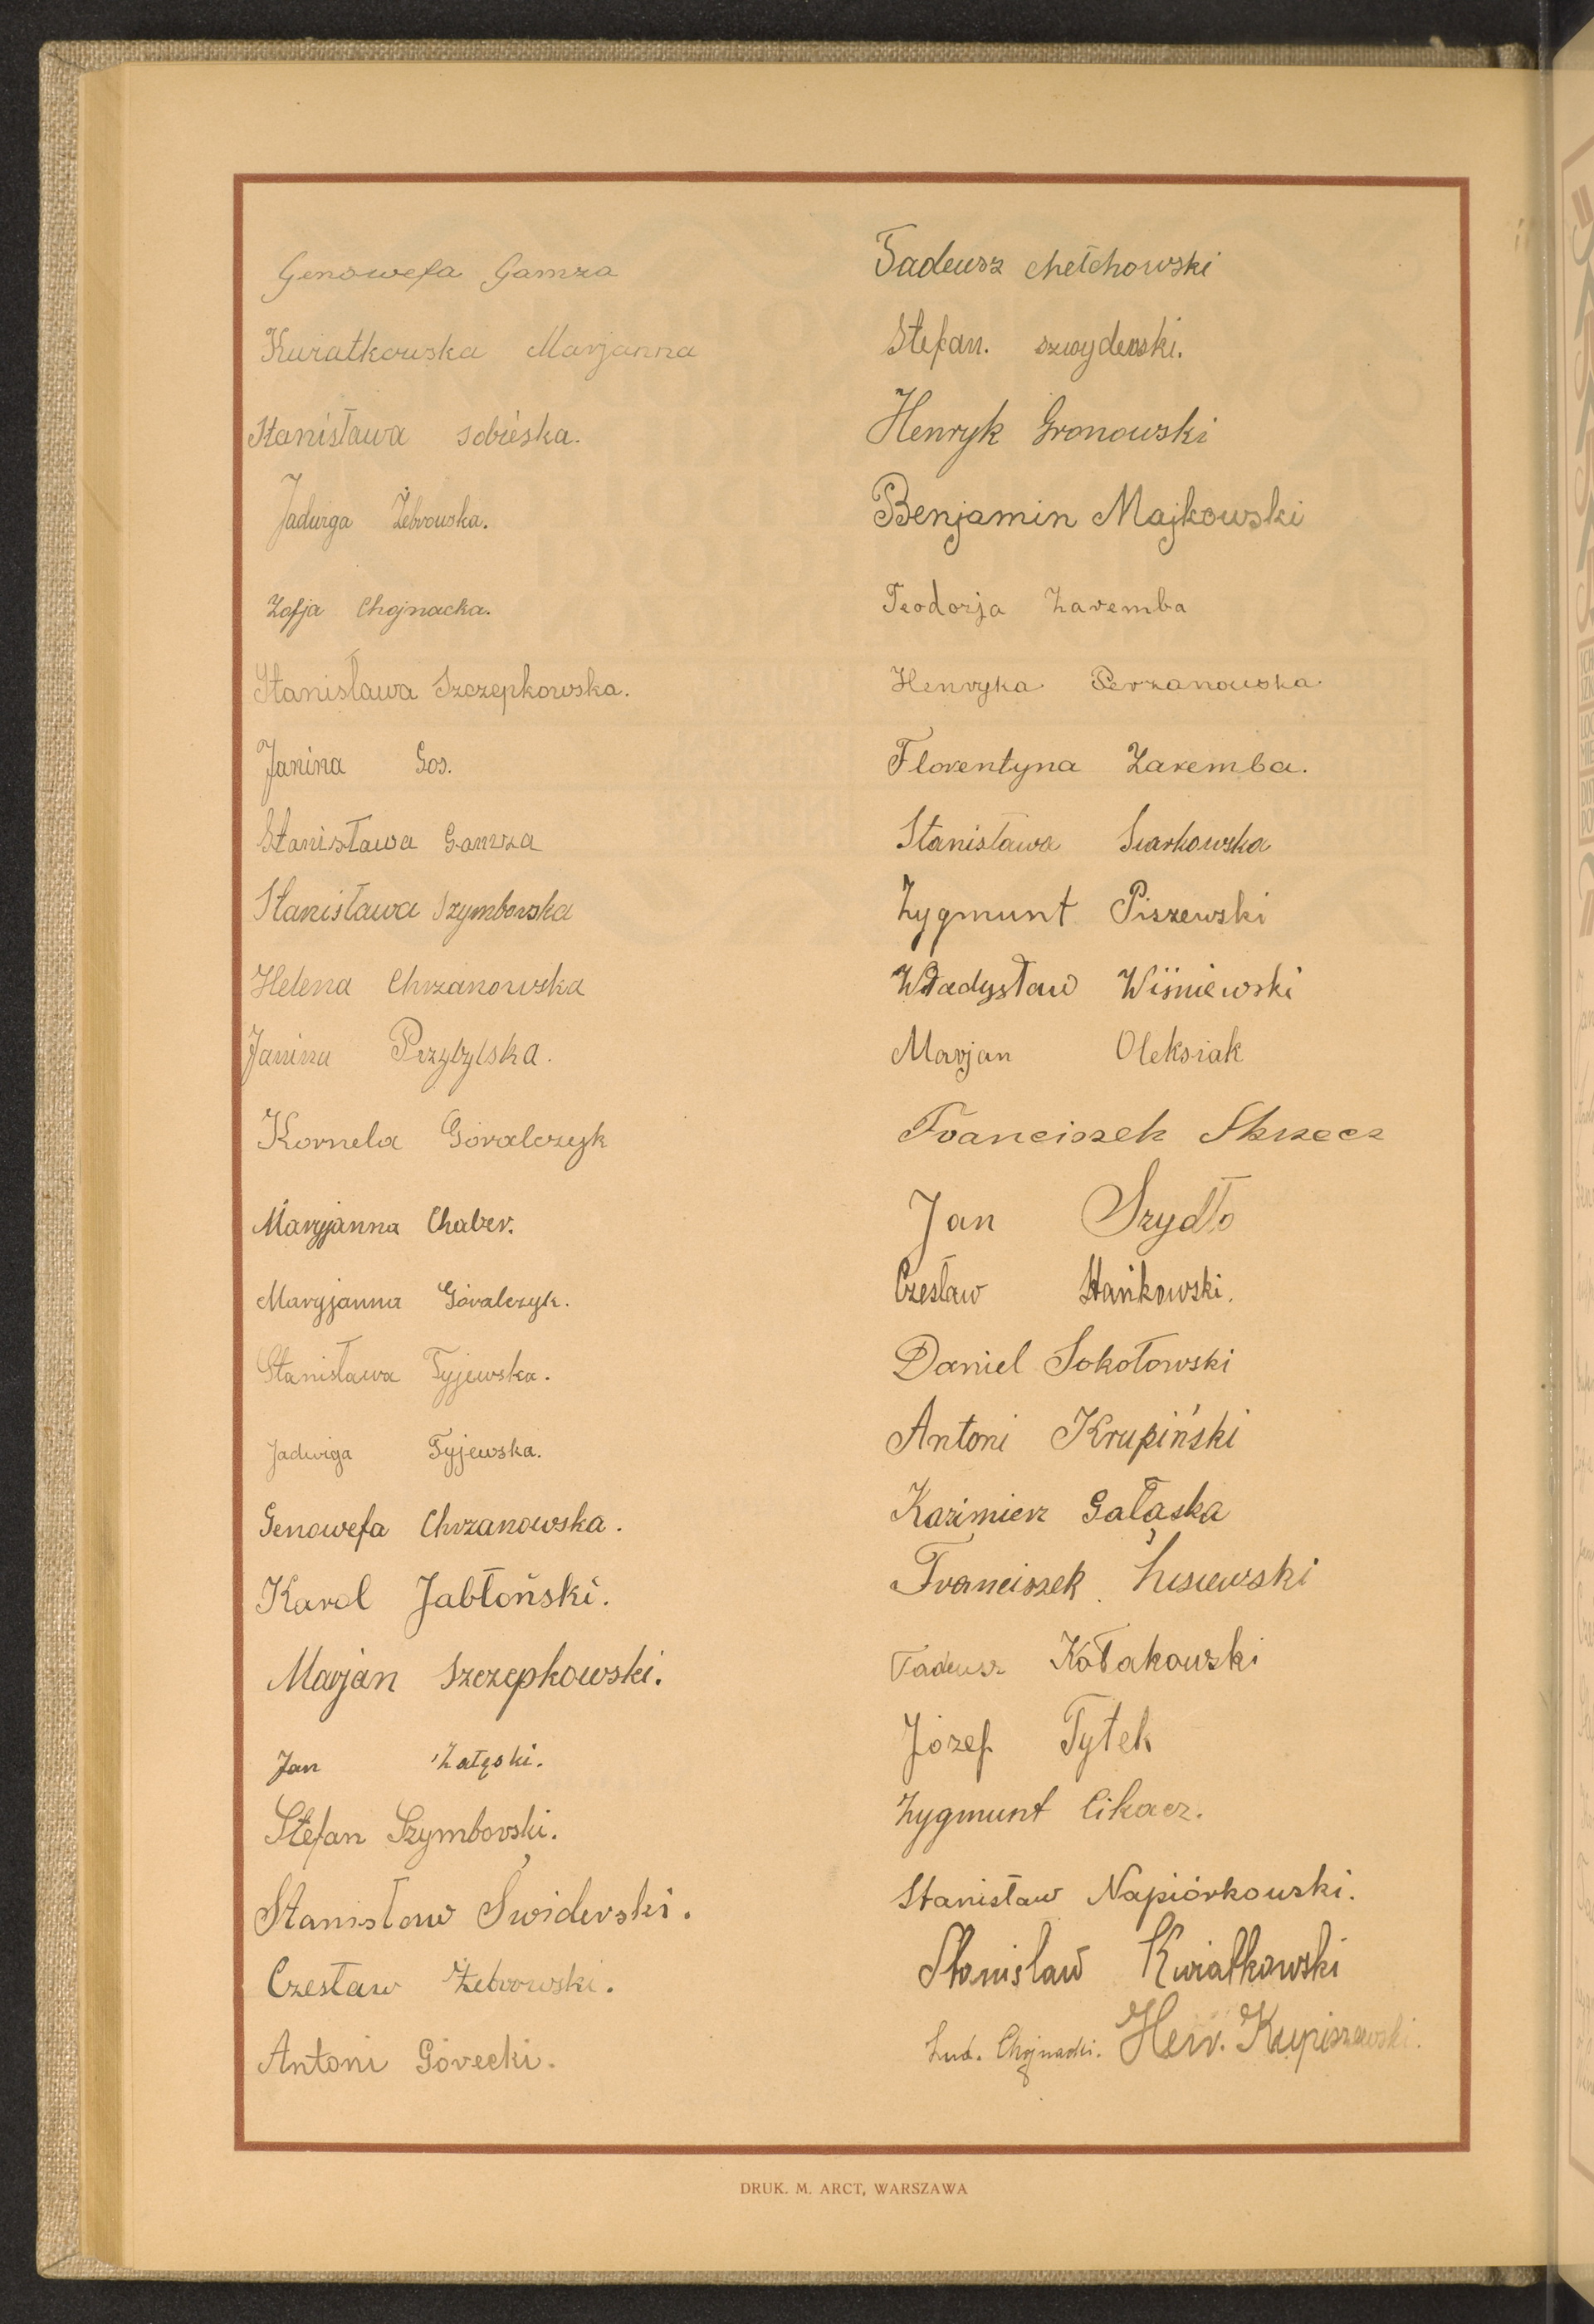 Genowefa Gamza
Kwiatkowska Marjanna
Stanisława sobieska.
Jadwiga Żebrowska.
Zofja Chojnacka.
Stanisława Szczepkowska.
Janina Gos.
Stanisława Gamza
Stanisława Szymborska
Helena Chrzanowska
Janina Przybylska.
Kornela Góralczyk
Maryjanna Chaber.
Maryjanna Góralczyk.
Stanisława Tyjewska.
Jadwiga Tyjewska.
Genowefa Chrzanowska.
Karol Jabłoński.
Marjan Szczepkowski.
Jan Załęski.
Stefan Szymborski.
Stanisław Świderski.
Czesław Żebrowski.
Antoni Górecki.
Tadeusz chełchowski
Stefan. szwyderski.
Henryk Gronowski
Benjamin Majkowski
Teodorja Zaremba
Henryka Perzanowska.
Florentyna Zaremba.
Stanisława Siarkowska
Zygmunt Piszewski
Władysław Wiśniewski
Marjan Oleksiak
Franciszek Skrzecz
Jan Szydło
Czesław Stańkowski.
Daniel Sokołowski
Antoni Krupiński
Kazimierz Gałąska
Franciszek Lisiewski
Tadeusz Kołakowski
Józef Tytek
Zygmunt Cikacz.
Stanisław Napiórkowski.
Stanisław Kwiatkowski
Lud. Chojnacki. Hen. Kupiszewski.
DRUK. M. ARCT, WARSZAWA